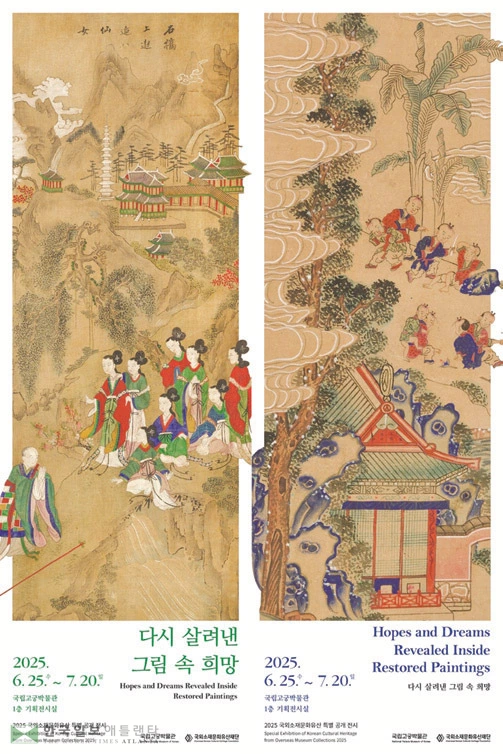 石橋
上邂
逅
仙
女
다시 살려낸
그림 속 희망
Hopes and Dreams Revealed Inside
Restored Paintings
2025.
6. 25.수 ~ 7. 20.일
국립고궁박물관
1층 기획전시실
2025 국외소재문화유산 특별 공개 전시
한국일보애틀랜타
TIMES ATLANTA
국립고궁박물관
국외소재문화유산재단
Hopes and Dreams
Revealed Inside
Restored Paintings
다시 살려낸 그림 속 희망
2025.
6. 25.수 ~ 7. 20.일
국립고궁박물관
1층 기획전시실
2025 국외소재문화유산 특별 공개 전시
Special Exhibition of Korean Cultural Heritage
from Overseas Museum Collections 2025
국립고궁박물관
국외소재문화유산재단